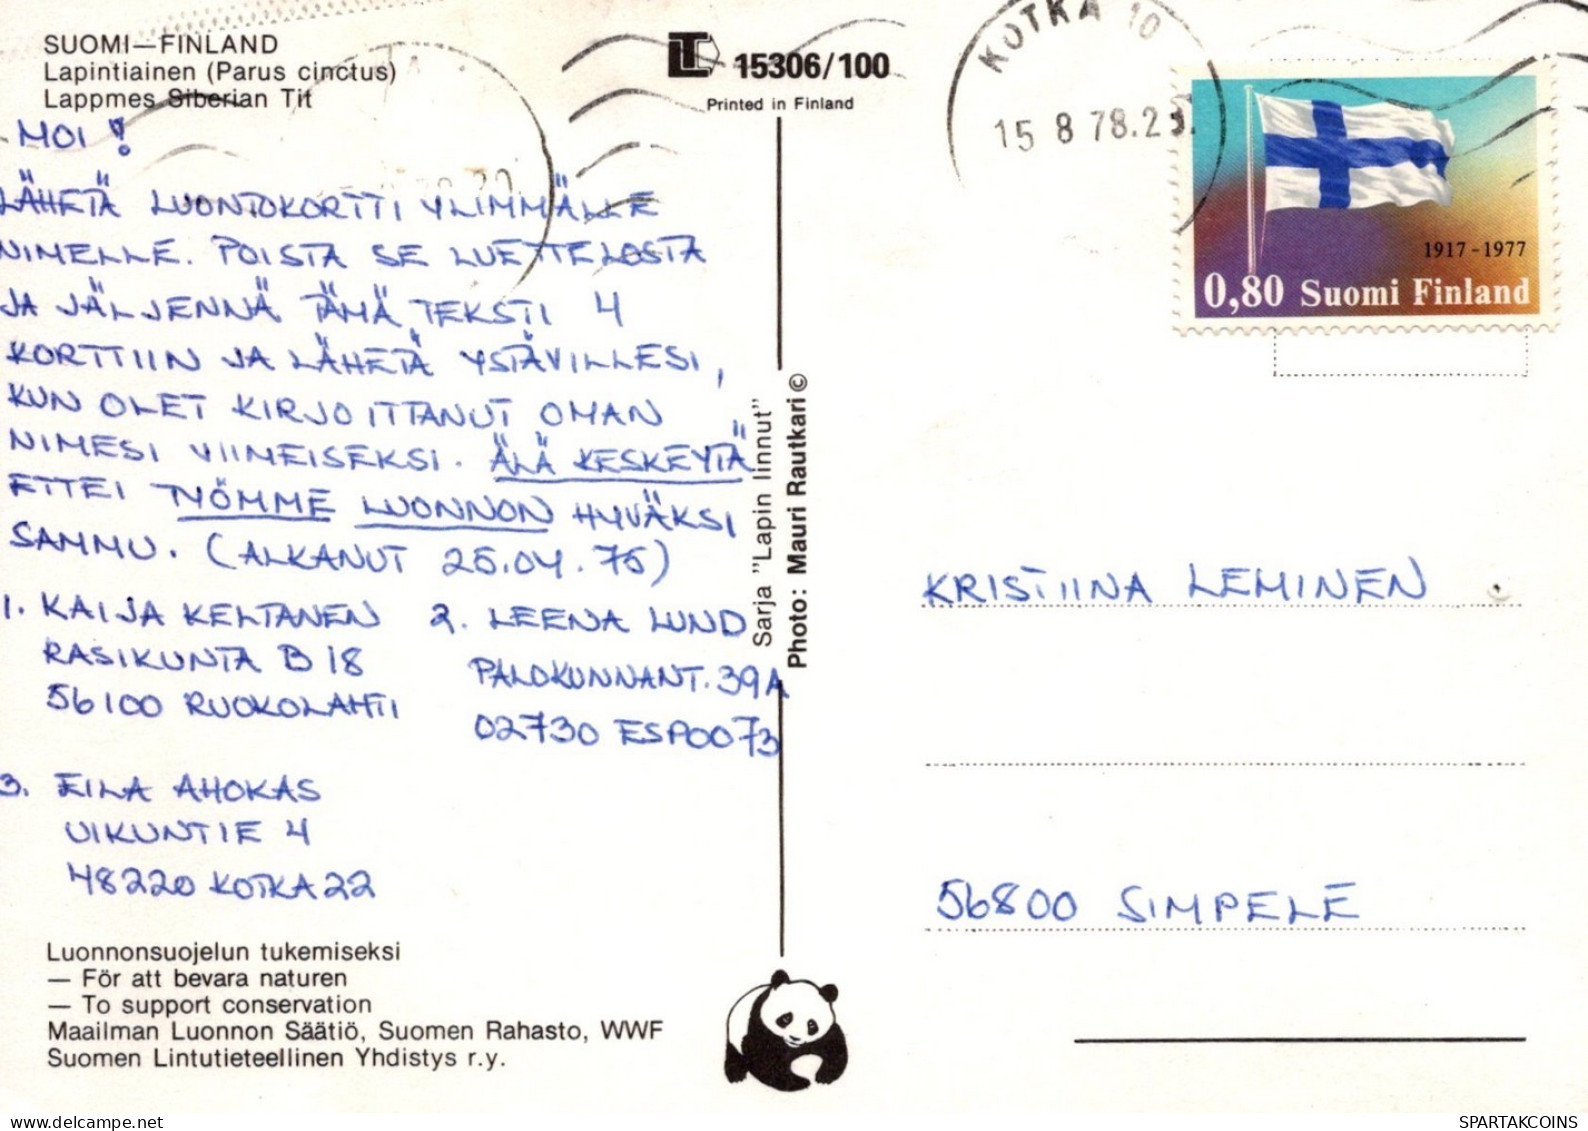 SUOMI—FINLAND
Lapintiainen (Parus cinctus)
Lappmes Siberian Tit
15306/100
Printed in Finland
KOTKA 10
15 8 78.2
1917-1977
0,80 Suomi Finland
MOI!
LÄHETÄ LUONTOKORTTI YLIMMÄLLE
NIMELLE. POISTA SE LUETTELOSTA
JA JÄLJENNÄ TÄMÄ TEKSTI 4
KORTTIIN JA LÄHETÄ YSTÄVILLESI,
KUN OLET KIRJOITTANUT OMAN
NIMESI VIIMEISEKSI. ÄLÄ KESKEYTÄ
ETTEI TYÖMME LUONNON HYVÄKSI
SAMMU. (ALKANUT 25.04.75)
1. KAIJA KELTANEN
RASIKUNTA B 18
56100 RUOKOLAHTI
2. LEENA LUND
PALOKUNNANT. 39A
02730 ESPOO73
3. EILA AHOKAS
UIKUNTIE 4
48220 KOTKA22
Sarja "Lapin linnut"
Photo: Mauri Rautkari ©
KRISTIINA LEMINEN
56800 SIMPELE
Luonnonsuojelun tukemiseksi
— För att bevara naturen
— To support conservation
Maailman Luonnon Säätiö, Suomen Rahasto, WWF
Suomen Lintutieteellinen Yhdistys r.y.
SPARTAKCOINS